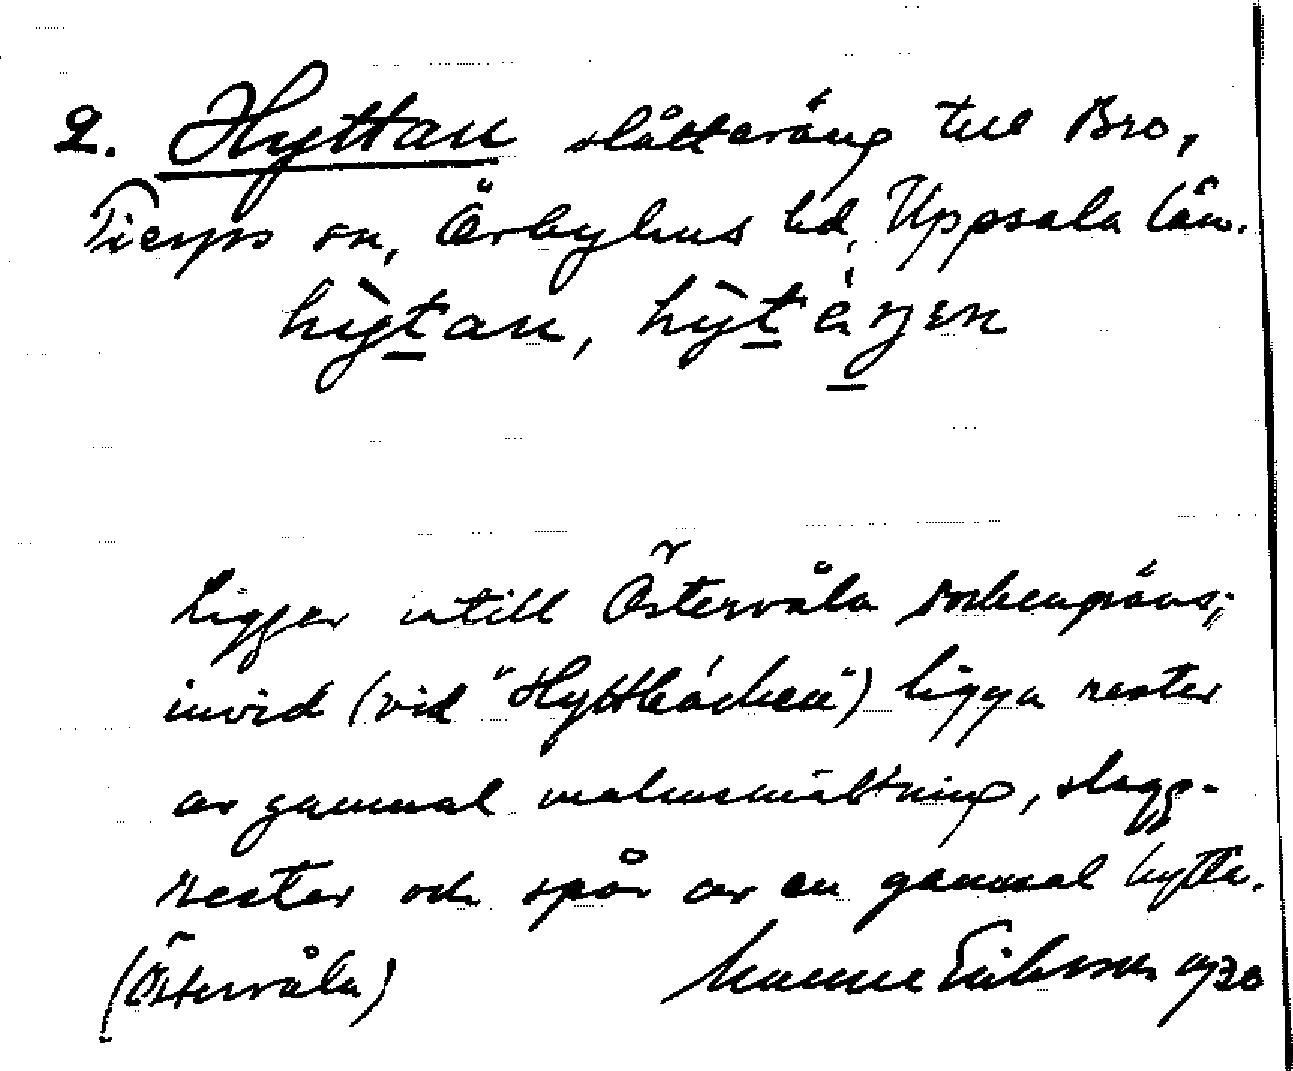 2. Hyttan slåtteräng till Bro,
Tierps sn, Örbyhus hd, Uppsala län.
hỳtan, hỳtèŋen
Ligger intill Östervåla sockengräns;
invid (vid "Hyttbäcken") ligga rester
av gammal malmsmältning, slagg-
rester och spår av en gammal hytta.
(Östervåla) Manne Eriksson 1930